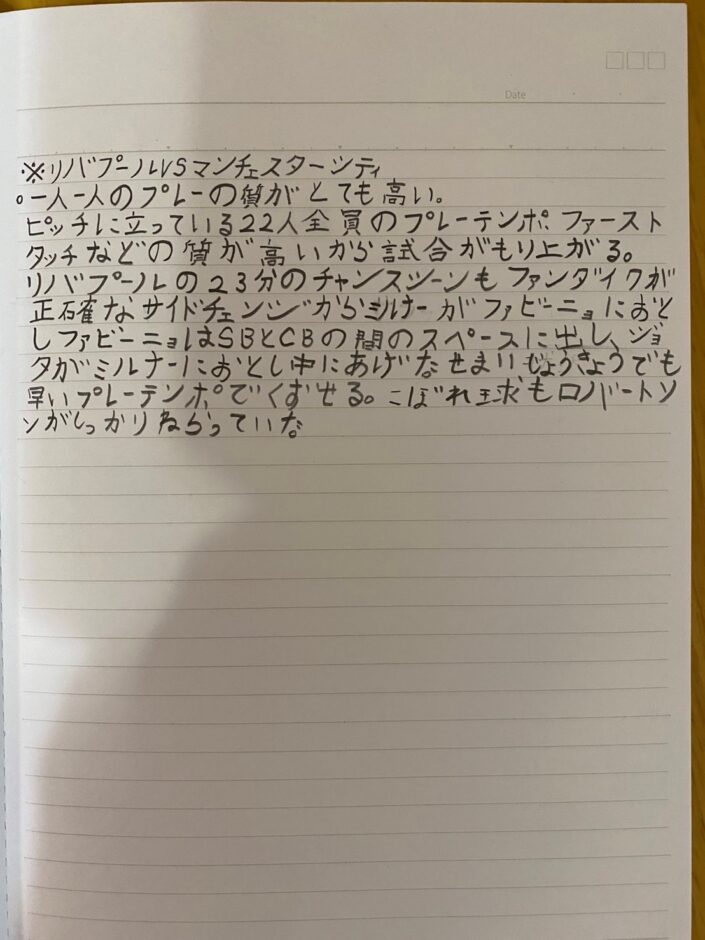 Date
※リバプールVSマンチェスターシティ
。一人一人のプレーの質がとても高い。
ピッチに立っている22人全員のプレーテンポ、ファースト
タッチなどの質が高いから試合がもり上がる。
リバプールの23分のチャンスシーンもファンダイクが
正確なサイドチェンジからミルナーがファビーニョにおと
しファビーニョはSBとCBの間のスペースに出し、ジョ
タがミルナーにおとし中にあげた。せまいじょうきょうでも
早いプレーテンポでくずせる。こぼれ球もロバートソ
ンがしっかりねらっていた。